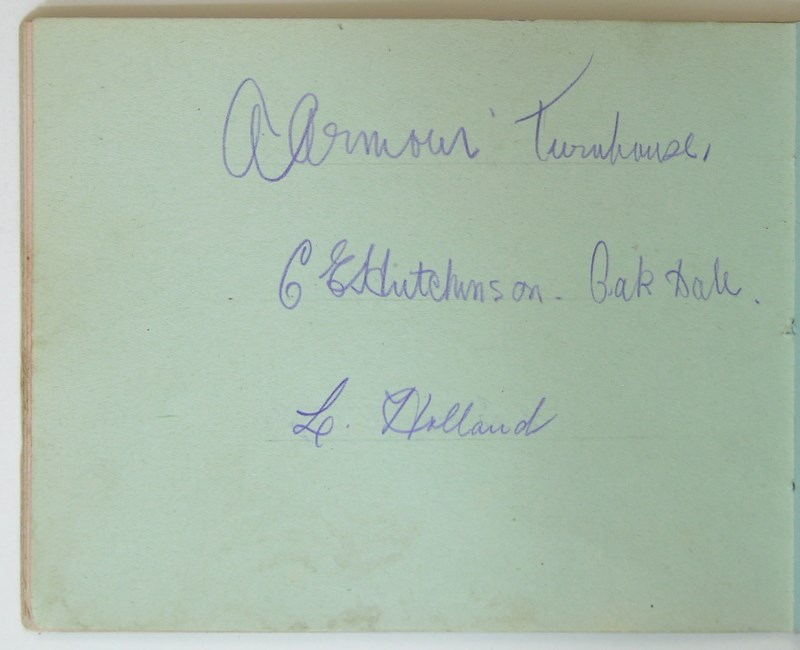 A Armour Turnhouse,
C E Hutchinson. Oak Dale.
L. Holland